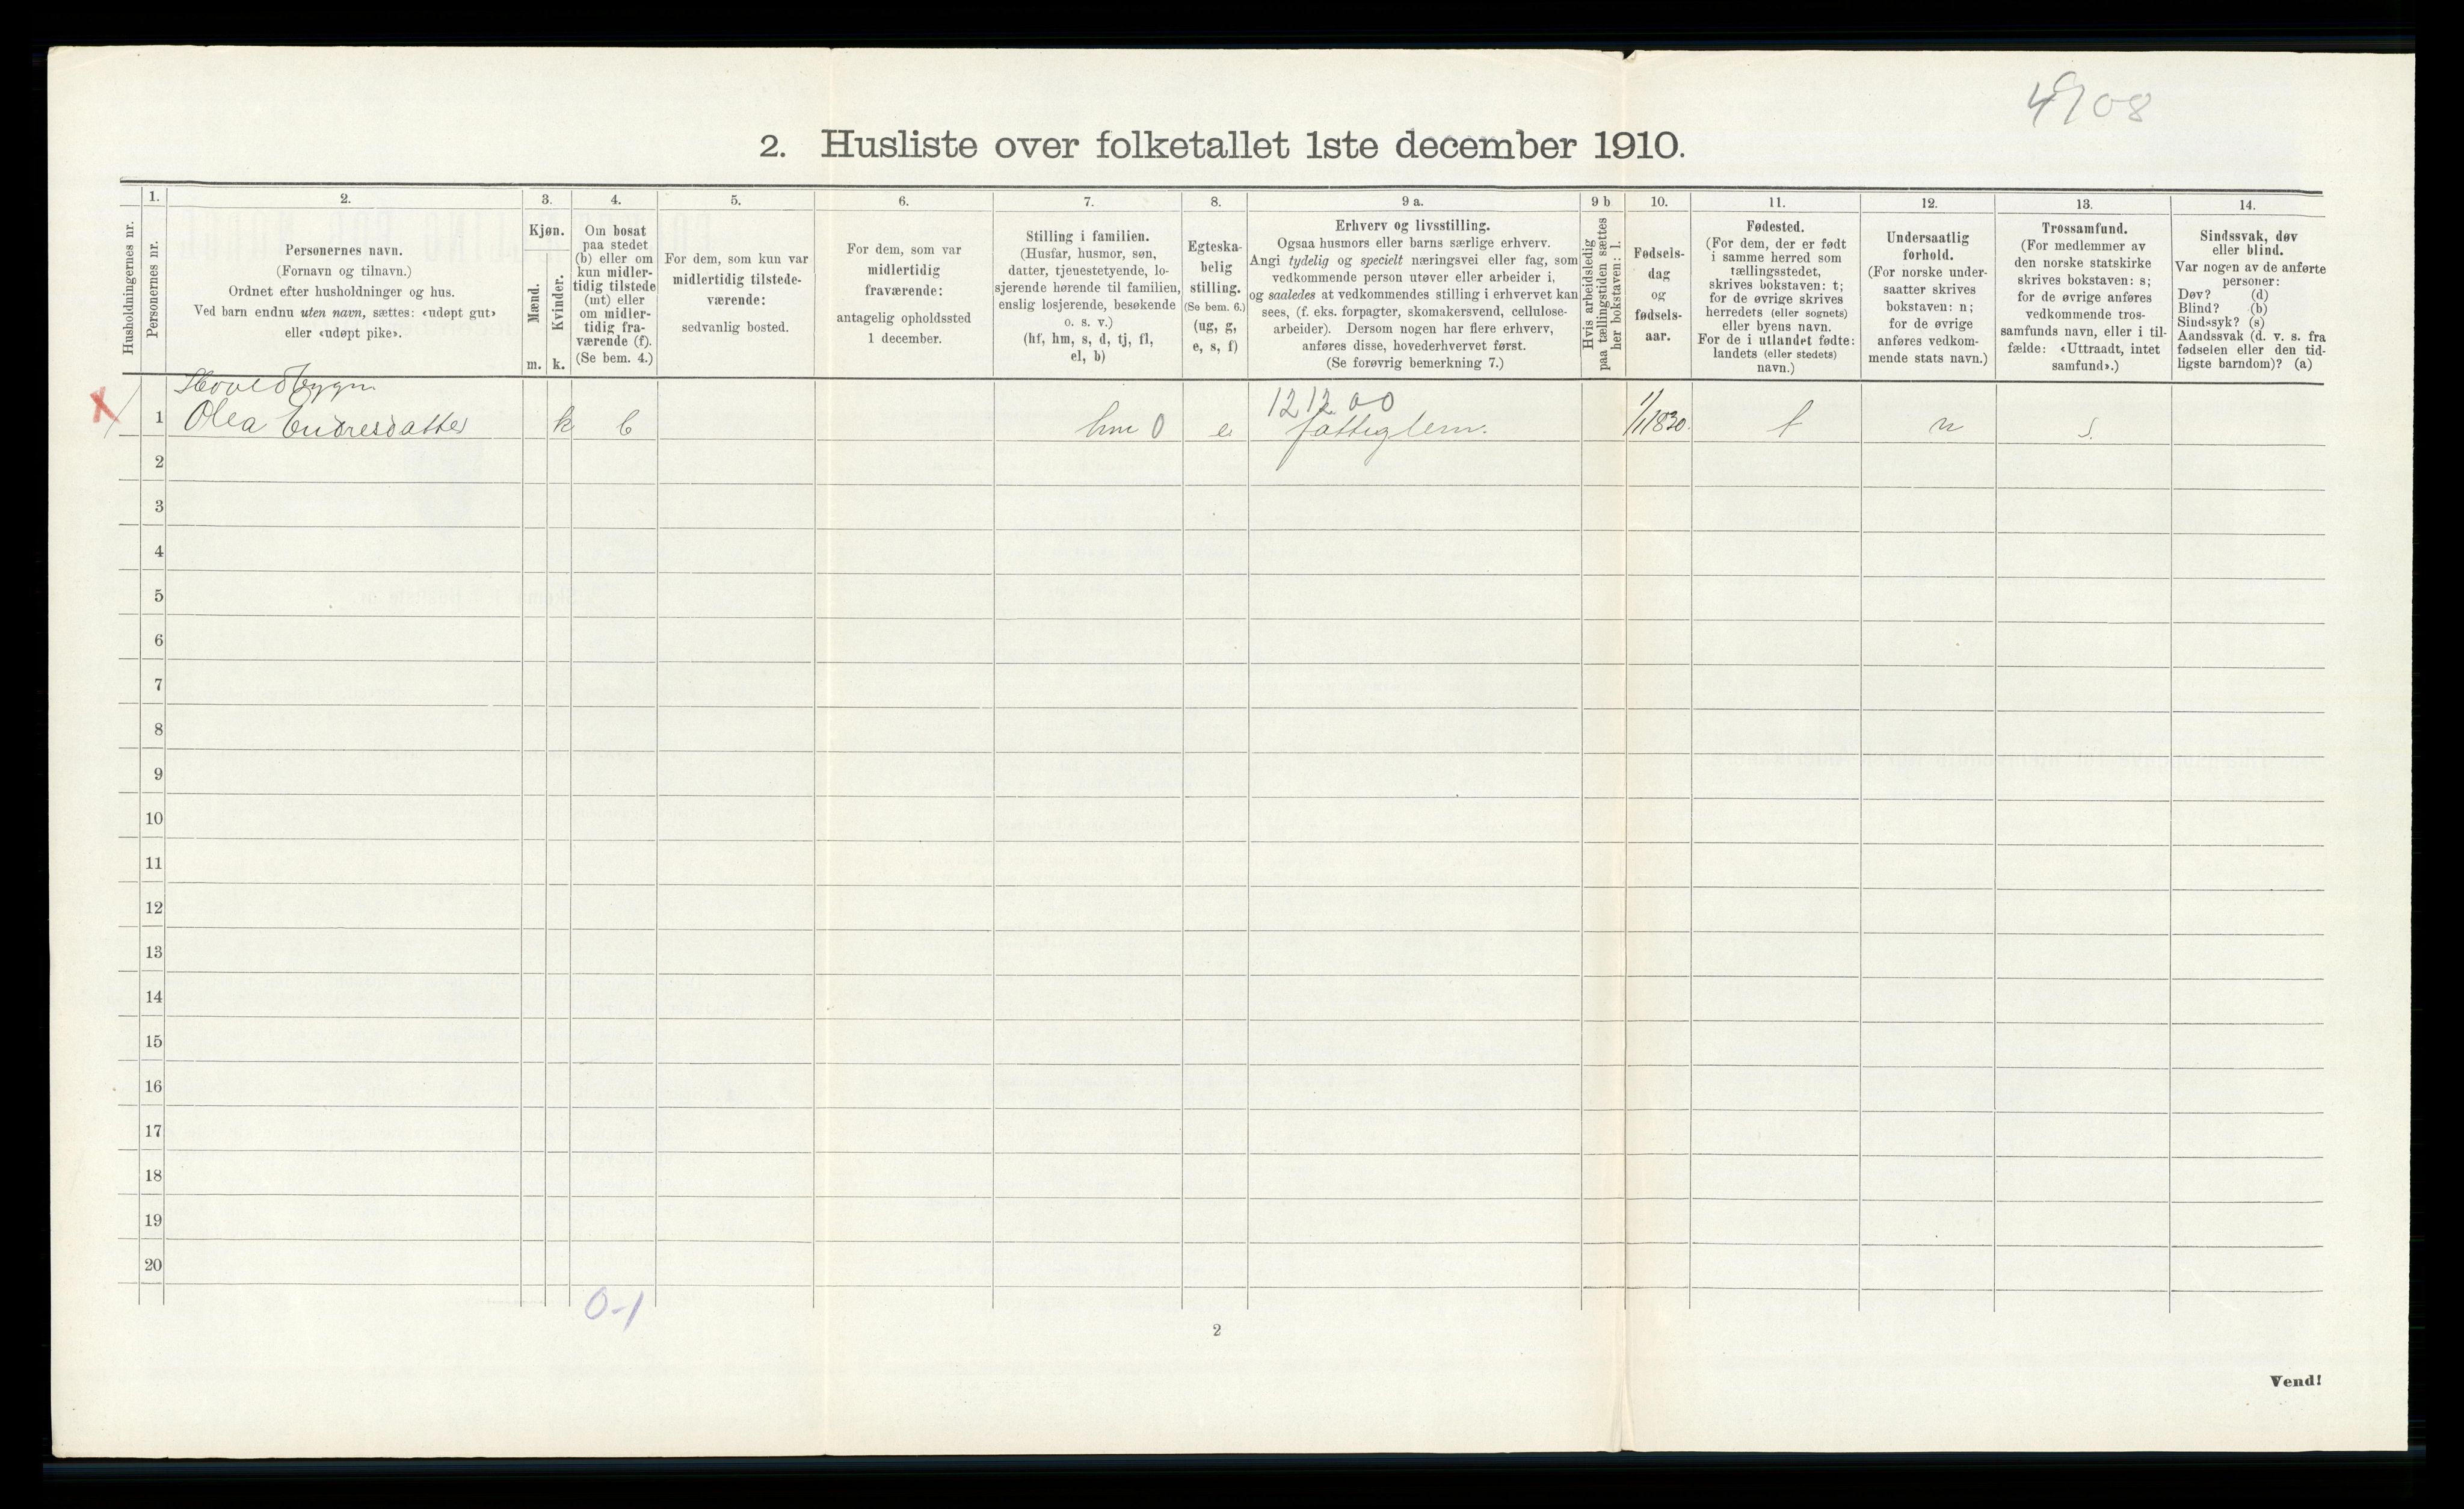 4908
2. Husliste over folketallet 1ste december 1910.
Husholdningernes nr.
1.
Personernes nr.
2.
Personernes navn.
(Fornavn og tilnavn.)
Ordnet efter husholdninger og hus.
Ved barn endnu uten navn, sættes: «udøpt gut»
eller «udøpt pike».
3.
Kjøn.
Mænd.
Kvinder.
m.
k.
4.
Om bosat
paa stedet
(b) eller om
kun midler-
tidig tilstede
(mt) eller
om midler-
tidig fra-
værende (f).
(Se bem. 4.)
5.
For dem, som kun var
midlertidig tilstede-
værende:
sedvanlig bosted.
6.
For dem, som var
midlertidig
fraværende:
antagelig opholdssted
1 december.
7.
Stilling i familien.
(Husfar, husmor, søn,
datter, tjenestetyende, lo-
sjerende hørende til familien,
enslig losjerende, besøkende
o. s. v.)
(hf, hm, s, d, tj, fl,
el, b)
8.
Egteska-
belig
stilling.
(Se bem. 6.)
(ug, g,
e, s, f)
9 a.
Erhverv og livsstilling.
Ogsaa husmors eller barns særlige erhverv.
Angi tydelig og specielt næringsvei eller fag, som
vedkommende person utøver eller arbeider i,
og saaledes at vedkommendes stilling i erhvervet kan
sees, (f. eks. forpagter, skomakersvend, cellulose-
arbeider). Dersom nogen har flere erhverv,
anføres disse, hovederhvervet først.
(Se forøvrig bemerkning 7.)
9 b
Hvis arbeidsledig
paa tællingstiden sættes
her bokstaven: l.
10.
Fødsels-
dag
og
fødsels-
aar.
11.
Fødested.
(For dem, der er født
i samme herred som
tællingsstedet,
skrives bokstaven: t;
for de øvrige skrives
herredets (eller sognets)
eller byens navn.
For de i utlandet fødte:
landets (eller stedets)
navn.)
12.
Undersaatlig
forhold.
(For norske under-
saatter skrives
bokstaven: n;
for de øvrige
anføres vedkom-
mende stats navn.)
13.
Trossamfund.
(For medlemmer av
den norske statskirke
skrives bokstaven: s;
for de øvrige anføres
vedkommende tros-
samfunds navn, eller i til-
fælde: «Uttraadt, intet
samfund».)
14.
Sindssvak, døv
eller blind.
Var nogen av de anførte
personer:
Døv? (d)
Blind? (b)
Sindssyk? (s)
Aandssvak (d. v. s. fra
fødselen eller den tid-
ligste barndom)? (a)
Hovedbygn.
X
1 Olea Endresdatter k b hm 0 e fattiglem. 1/1 1830. t n s.
121200
2
3
4
5
6
7
8
9
10
11
12
13
14
15
16
17
18
19
20
0-1
2
Vend!